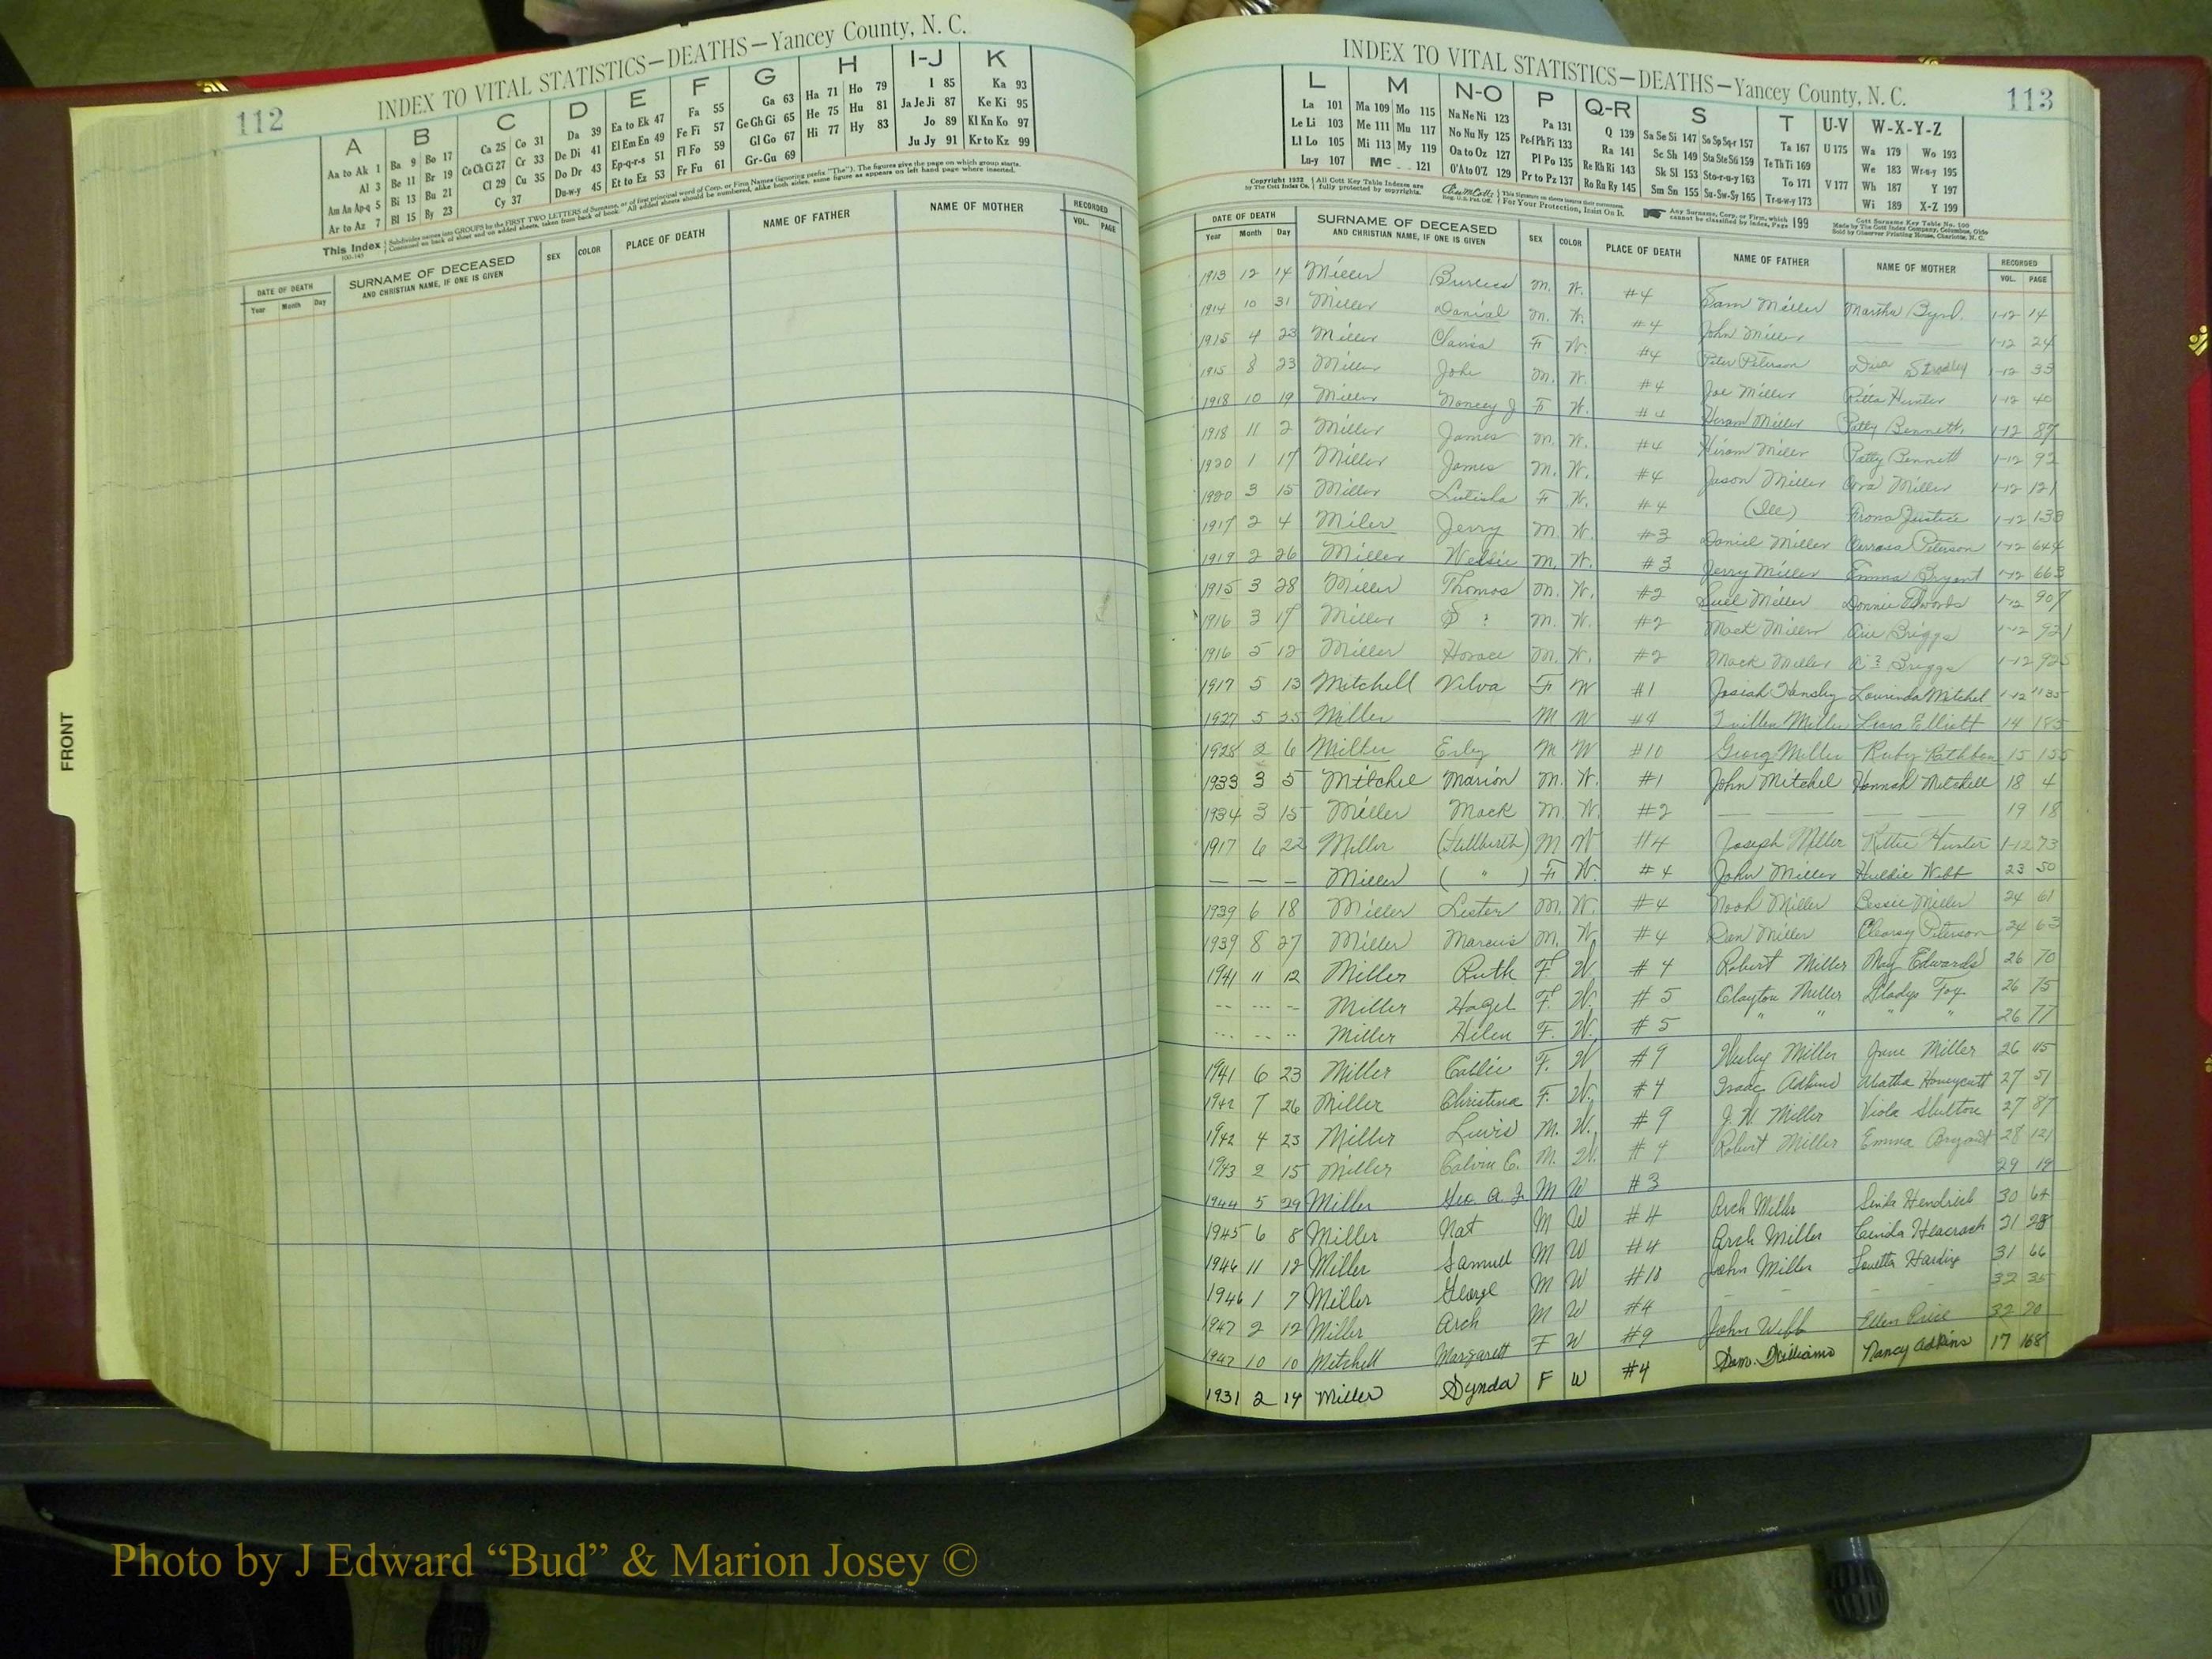 112
INDEX TO VITAL STATISTICS—DEATHS—Yancey County, N. C.
A B C D E F G H I-J K
Aa to Ak 1 Ba 9 Bo 17 Ca 25 Co 31 Da 39 Ea to Ek 47 Fa 55 Ga 63 Ha 71 Ho 79 I 85 Ka 93
Al 3 Be 11 Br 19 Ce Ch Ci 27 Cr 33 De Di 41 El Em En 49 Fe Fi 57 Ge Gh Gi 65 He 75 Hu 81 Ja Je Ji 87 Ke Ki 95
Am An Ap-q 5 Bi 13 Bu 21 Cl 29 Cu 35 Do Dr 43 Ep-q-r-s 51 Fl Fo 59 Gl Go 67 Hi 77 Hy 83 Jo 89 Kl Kn Ko 97
Ar to Az 7 Bl 15 By 23 Cy 37 Du-w-y 45 Et to Ez 53 Fr Fu 61 Gr-Gu 69 Ju Jy 91 Kr to Kz 99
This Index Subdivides names into GROUPS by the FIRST TWO LETTERS of Surname, or of first principal word of Corp. or Firm Names (ignoring prefix "The"). The figures give the page on which group starts.
Continued on back of sheet and on added sheets, taken from back of book. All added sheets should be numbered, alike both sides, same figure as appears on left hand page where inserted.
DATE OF DEATH SURNAME OF DECEASED SEX COLOR PLACE OF DEATH NAME OF FATHER NAME OF MOTHER RECORDED
Year Month Day AND CHRISTIAN NAME, IF ONE IS GIVEN VOL. PAGE
FRONT
INDEX TO VITAL STATISTICS—DEATHS—Yancey County, N. C.
113
L M N-O P Q-R S T U-V W-X-Y-Z
La 101 Ma 109 Mo 115 Na Ne Ni 123 Pa 131 Q 139 Sa Se Si 147 So Sp Sq-r 157 Ta 167 U 175 Wa 179 Wo 193
Le Li 103 Me 111 Mu 117 No Nu Ny 125 Pe-f Ph Pi 133 Ra 141 Sc Sh 149 Sta Ste Sti 159 Te Th Ti 169 We 183 Wr-u-y 195
Ll Lo 105 Mi 113 My 119 Oa to Oz 127 Pl Po 135 Re Rh Ri 143 Sk Sl 153 Sto-r-u-y 163 To 171 V 177 Wh 187 Y 197
Lu-y 107 Mc 121 O'A to O'Z 129 Pr to Pz 137 Ro Ru Ry 145 Sm Sn 155 Su-Sw-Sy 165 Tr-u-w-y 173 Wi 189 X-Z 199
Copyright 1932 by The Cott Index Co. All Cott Key Table Indexes are fully protected by copyrights. For Your Protection, Insist On It. Any Surname, Corp. or Firm, which cannot be classified by Index, Page 199 Cott Surname Key Table No. 100
Made by The Cott Index Company, Columbus, Ohio
Sold by Observer Printing House, Charlotte, N. C.
DATE OF DEATH SURNAME OF DECEASED SEX COLOR PLACE OF DEATH NAME OF FATHER NAME OF MOTHER RECORDED
Year Month Day AND CHRISTIAN NAME, IF ONE IS GIVEN VOL. PAGE
1913 12 14 Miller M. W. #4 Sam Miller Martha Byrd. 1-12 14
1914 10 31 Miller Danial M. W. #4 John Miller 1-12 24
1915 4 23 Miller F W. #4 Peter Peterson Stradley 1-12 33
1915 8 23 Miller John M. W. #4 Joe Miller Hunter 1-12 40
1918 10 19 Miller Noncey J F W. #4 Hiram Miller Patty Bennett 1-12 87
1918 11 2 Miller James M. W. #4 Hiram Miller Patty Bennett 1-12 92
1920 1 17 Miller James M. W. #4 Jason Miller Miller 1-12 121
1920 3 15 Miller Lutisha F W. #4 Justice 1-12 133
1917 2 4 Miler Jerry M W. #3 Daniel Miller Peterson 1-12 644
1919 2 26 Miller M. W. #3 Jerry Miller Emma Bryant 1-12 663
1915 3 28 Miller Thomas M. W. #2 Miller Donnie Edwards 1-12 907
1916 3 17 Miller ? M. W. #2 Mack Miller Briggs 1-12 921
1916 5 12 Miller Horace M. W. #2 Mack Miller ? Briggs 1-12 925
1917 5 13 Mitchell Vilva F W #1 Josiah Hensley Lourinda Mitchel 1-12 1135
1927 5 25 Miller M W #4 Miller Elliott 14 185
1928 2 6 Miller Erby M W #10 Georg Miller Ruby Rathbon 15 155
1933 3 5 Mitchel Marion M. W. #1 John Mitchel Hannah Mitchell 18 4
1934 3 15 Miller Mack M. W. #2 19 18
1917 6 22 Miller (Stillbirth) M W #4 Joseph Miller Kittie Hunter 1-12 73
Miller ( " ) F W. #4 John Miller Huldie Webb 23 50
1939 6 18 Miller Lester M. W. #4 Noah Miller Bessie Miller 24 61
1939 8 27 Miller Marcus M. W #4 Dan Miller Peterson 24 63
1941 11 12 Miller Ruth F W. #4 Robert Miller May Edwards 26 70
-- -- -- Miller Hazel F. W. #5 Clayton Miller Gladys Fox 26 75
-- -- -- Miller Helen F. W. #5 " " " " 26 77
1941 6 23 Miller Callie F. W #9 Wesley Miller Jane Miller 26 45
1942 7 26 Miller Christina F. W. #4 Isaac Adkins Honeycutt 27 51
1942 4 23 Miller Lewis M. W. #9 J. W. Miller Viola Shelton 27 87
1943 2 15 Miller Calvin C. M. W. #4 Robert Miller Emma Bryant 28 121
1944 5 29 Miller Geo. A. J. M W #3 29 19
1945 6 8 Miller Nat M W #4 Arch Miller Hendrick 30 64
1946 11 12 Miller Samuel M W #4 Arch Miller 31 28
1946 1 7 Miller George M W #10 John Miller Harding 31 66
1947 2 12 Miller Arch M W #4 - - - 32 35
1947 10 10 Mitchell Margarett F W #9 John Webb Ellen Price 32 70
1931 2 14 Miller Synda F W #4 Sam. Williams Nancy Adkins 17 168
Photo by J Edward “Bud” & Marion Josey ©